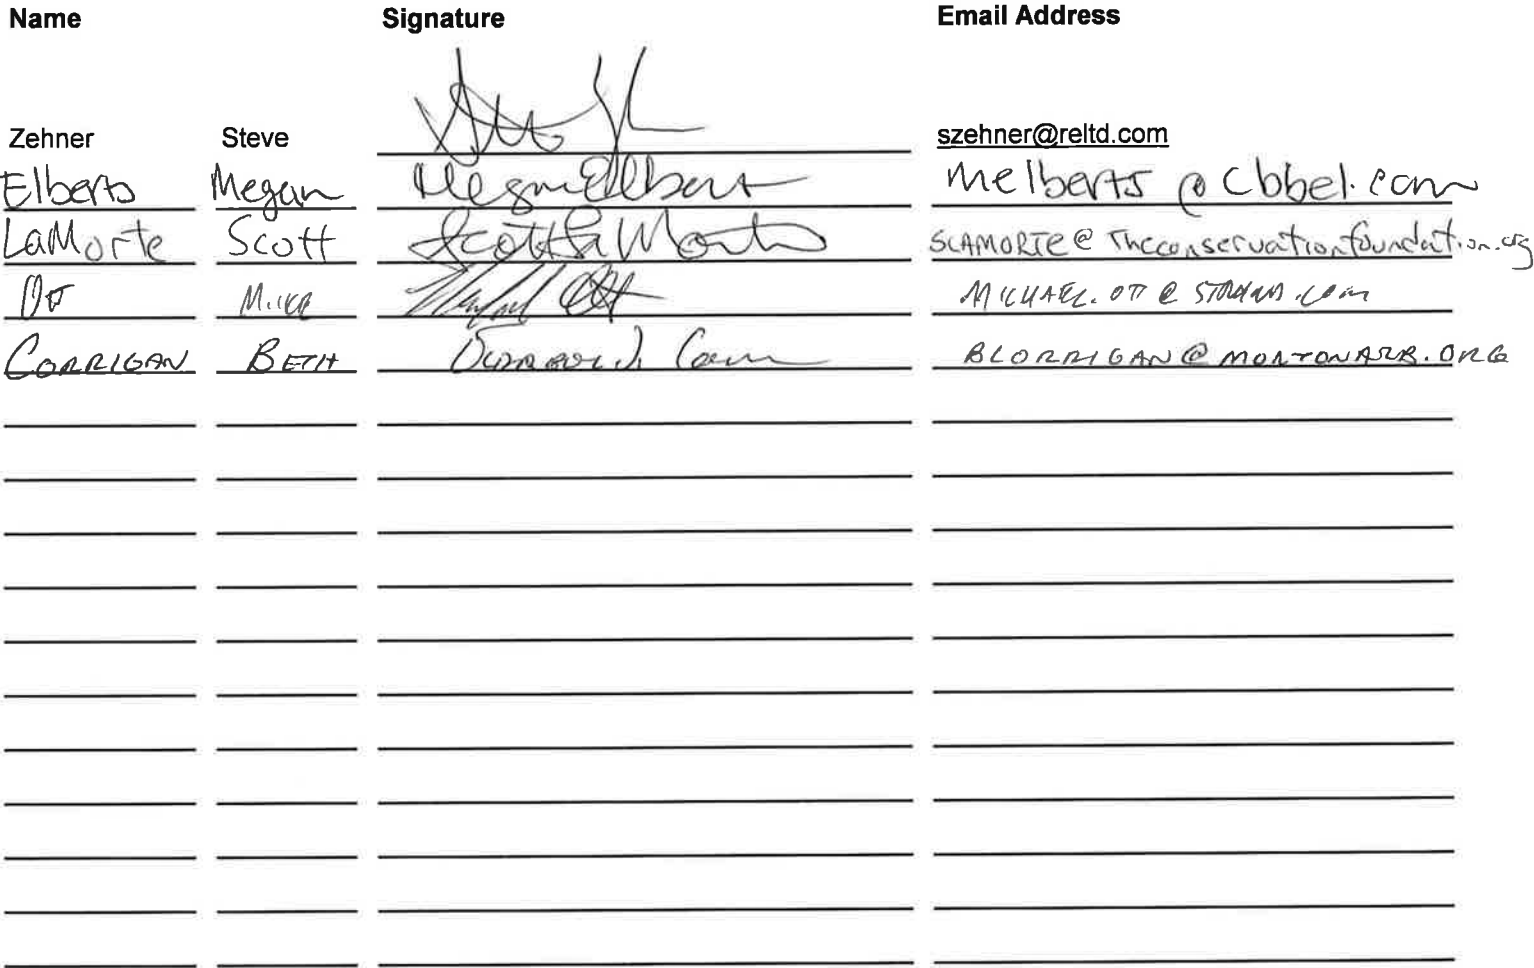 Name Signature Email Address
Zehner Steve szehner@reltd.com
Elberts Megan Megan Elberts melberts@cbbel.com
LaMorte Scott Scott LaMorte SLAMORTE@Theconservationfoundation.org
Ott Mike
CORRIGAN BETH BCORRIGAN@MORTONARB.ORG